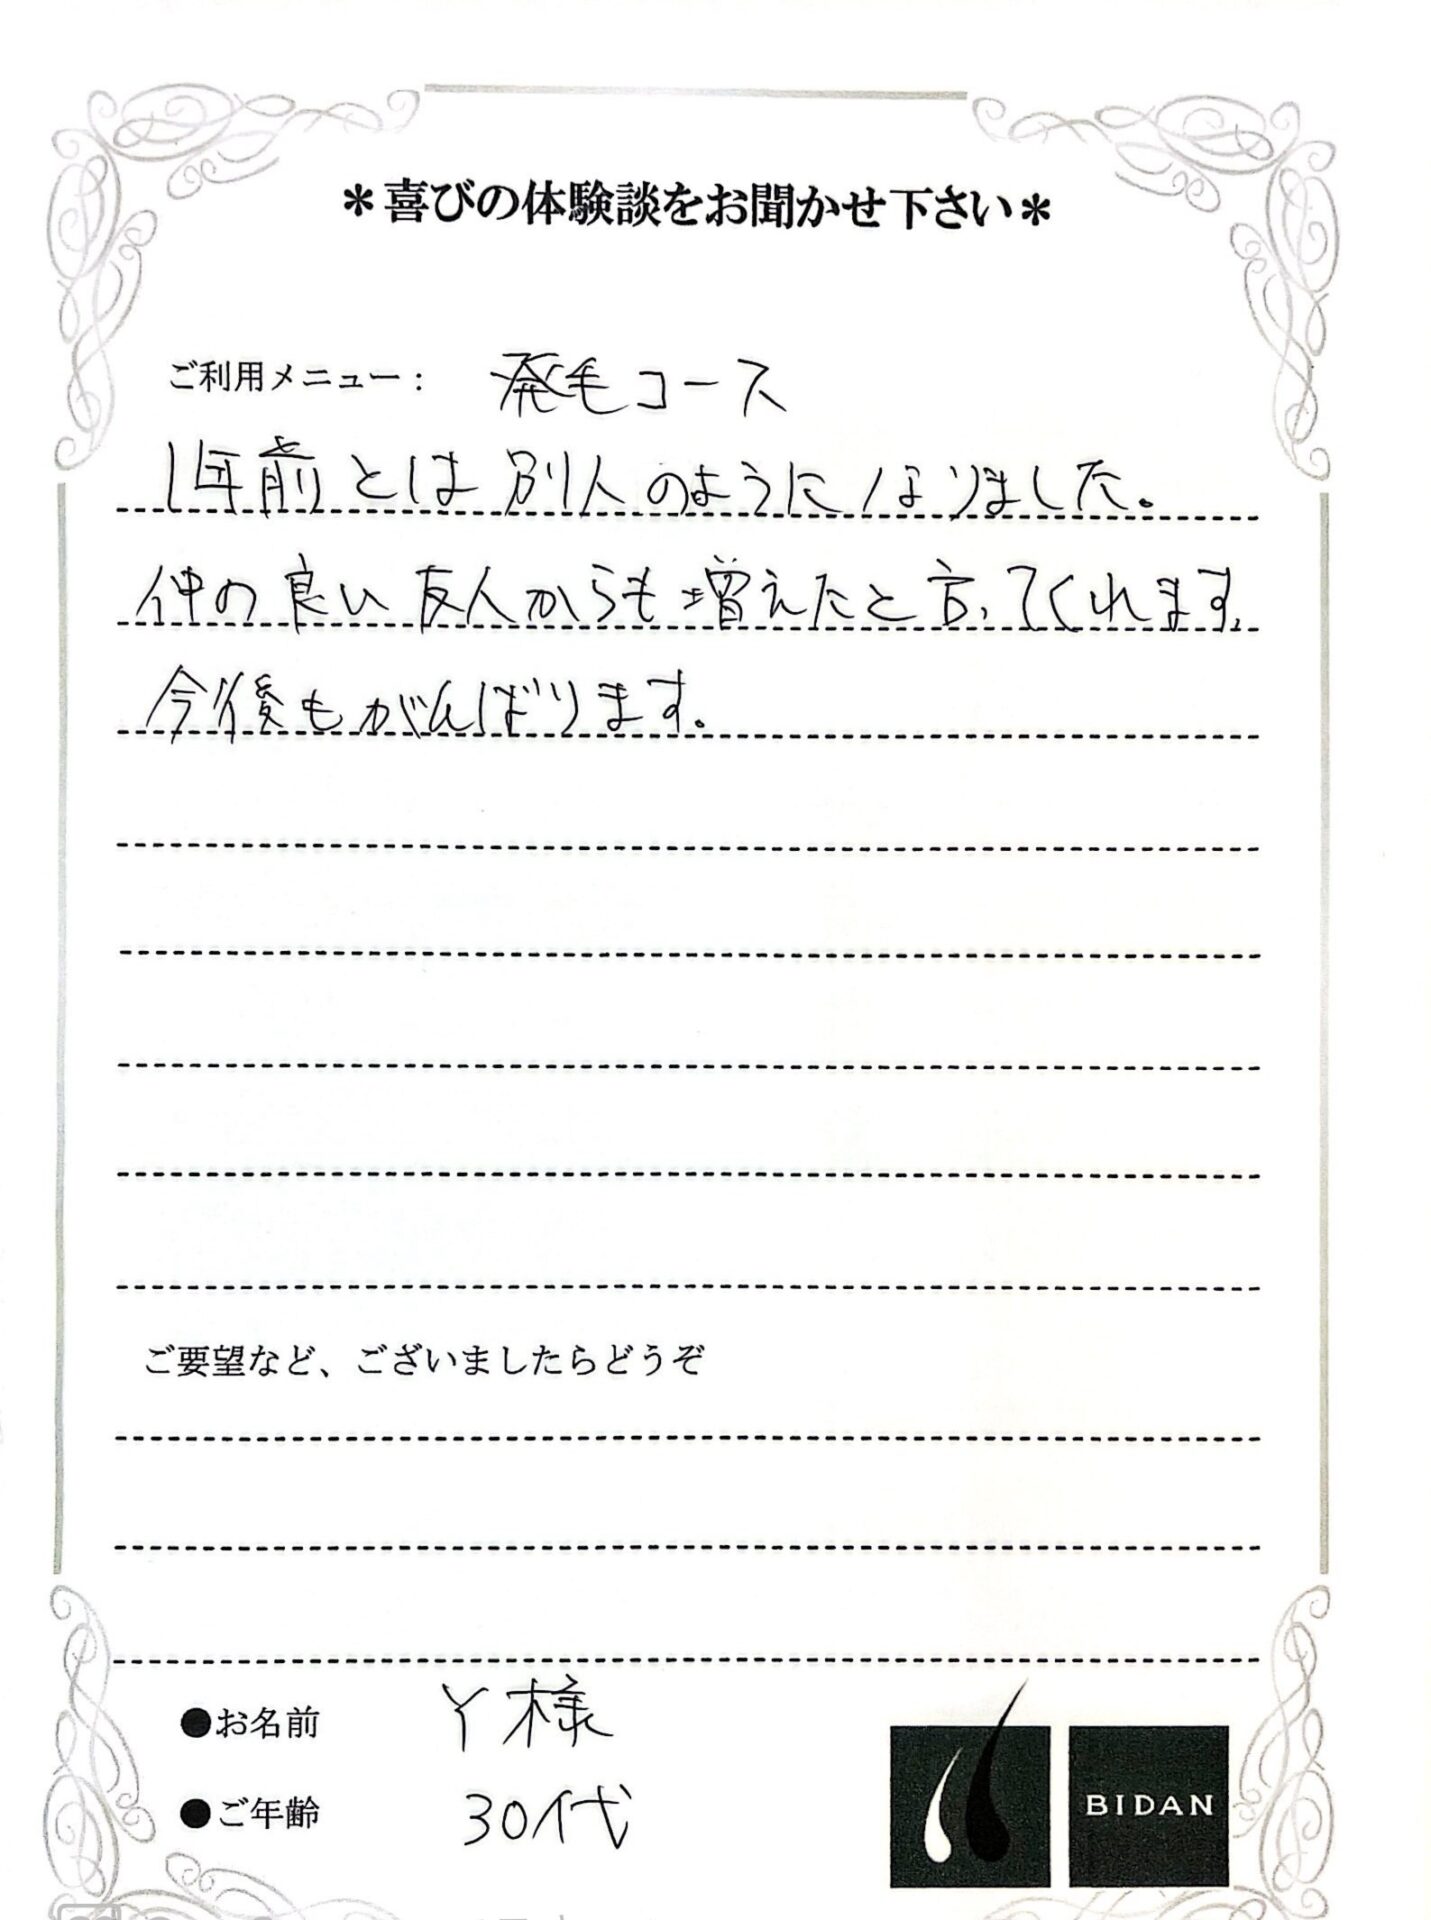 ＊喜びの体験談をお聞かせ下さい＊
ご利用メニュー： 発毛コース
1年前とは別人のようになりました。
仲の良い友人からも増えたと言ってくれます。
今後もがんばります。
ご要望など、ございましたらどうぞ
●お名前 Y様
●ご年齢 30代
BIDAN